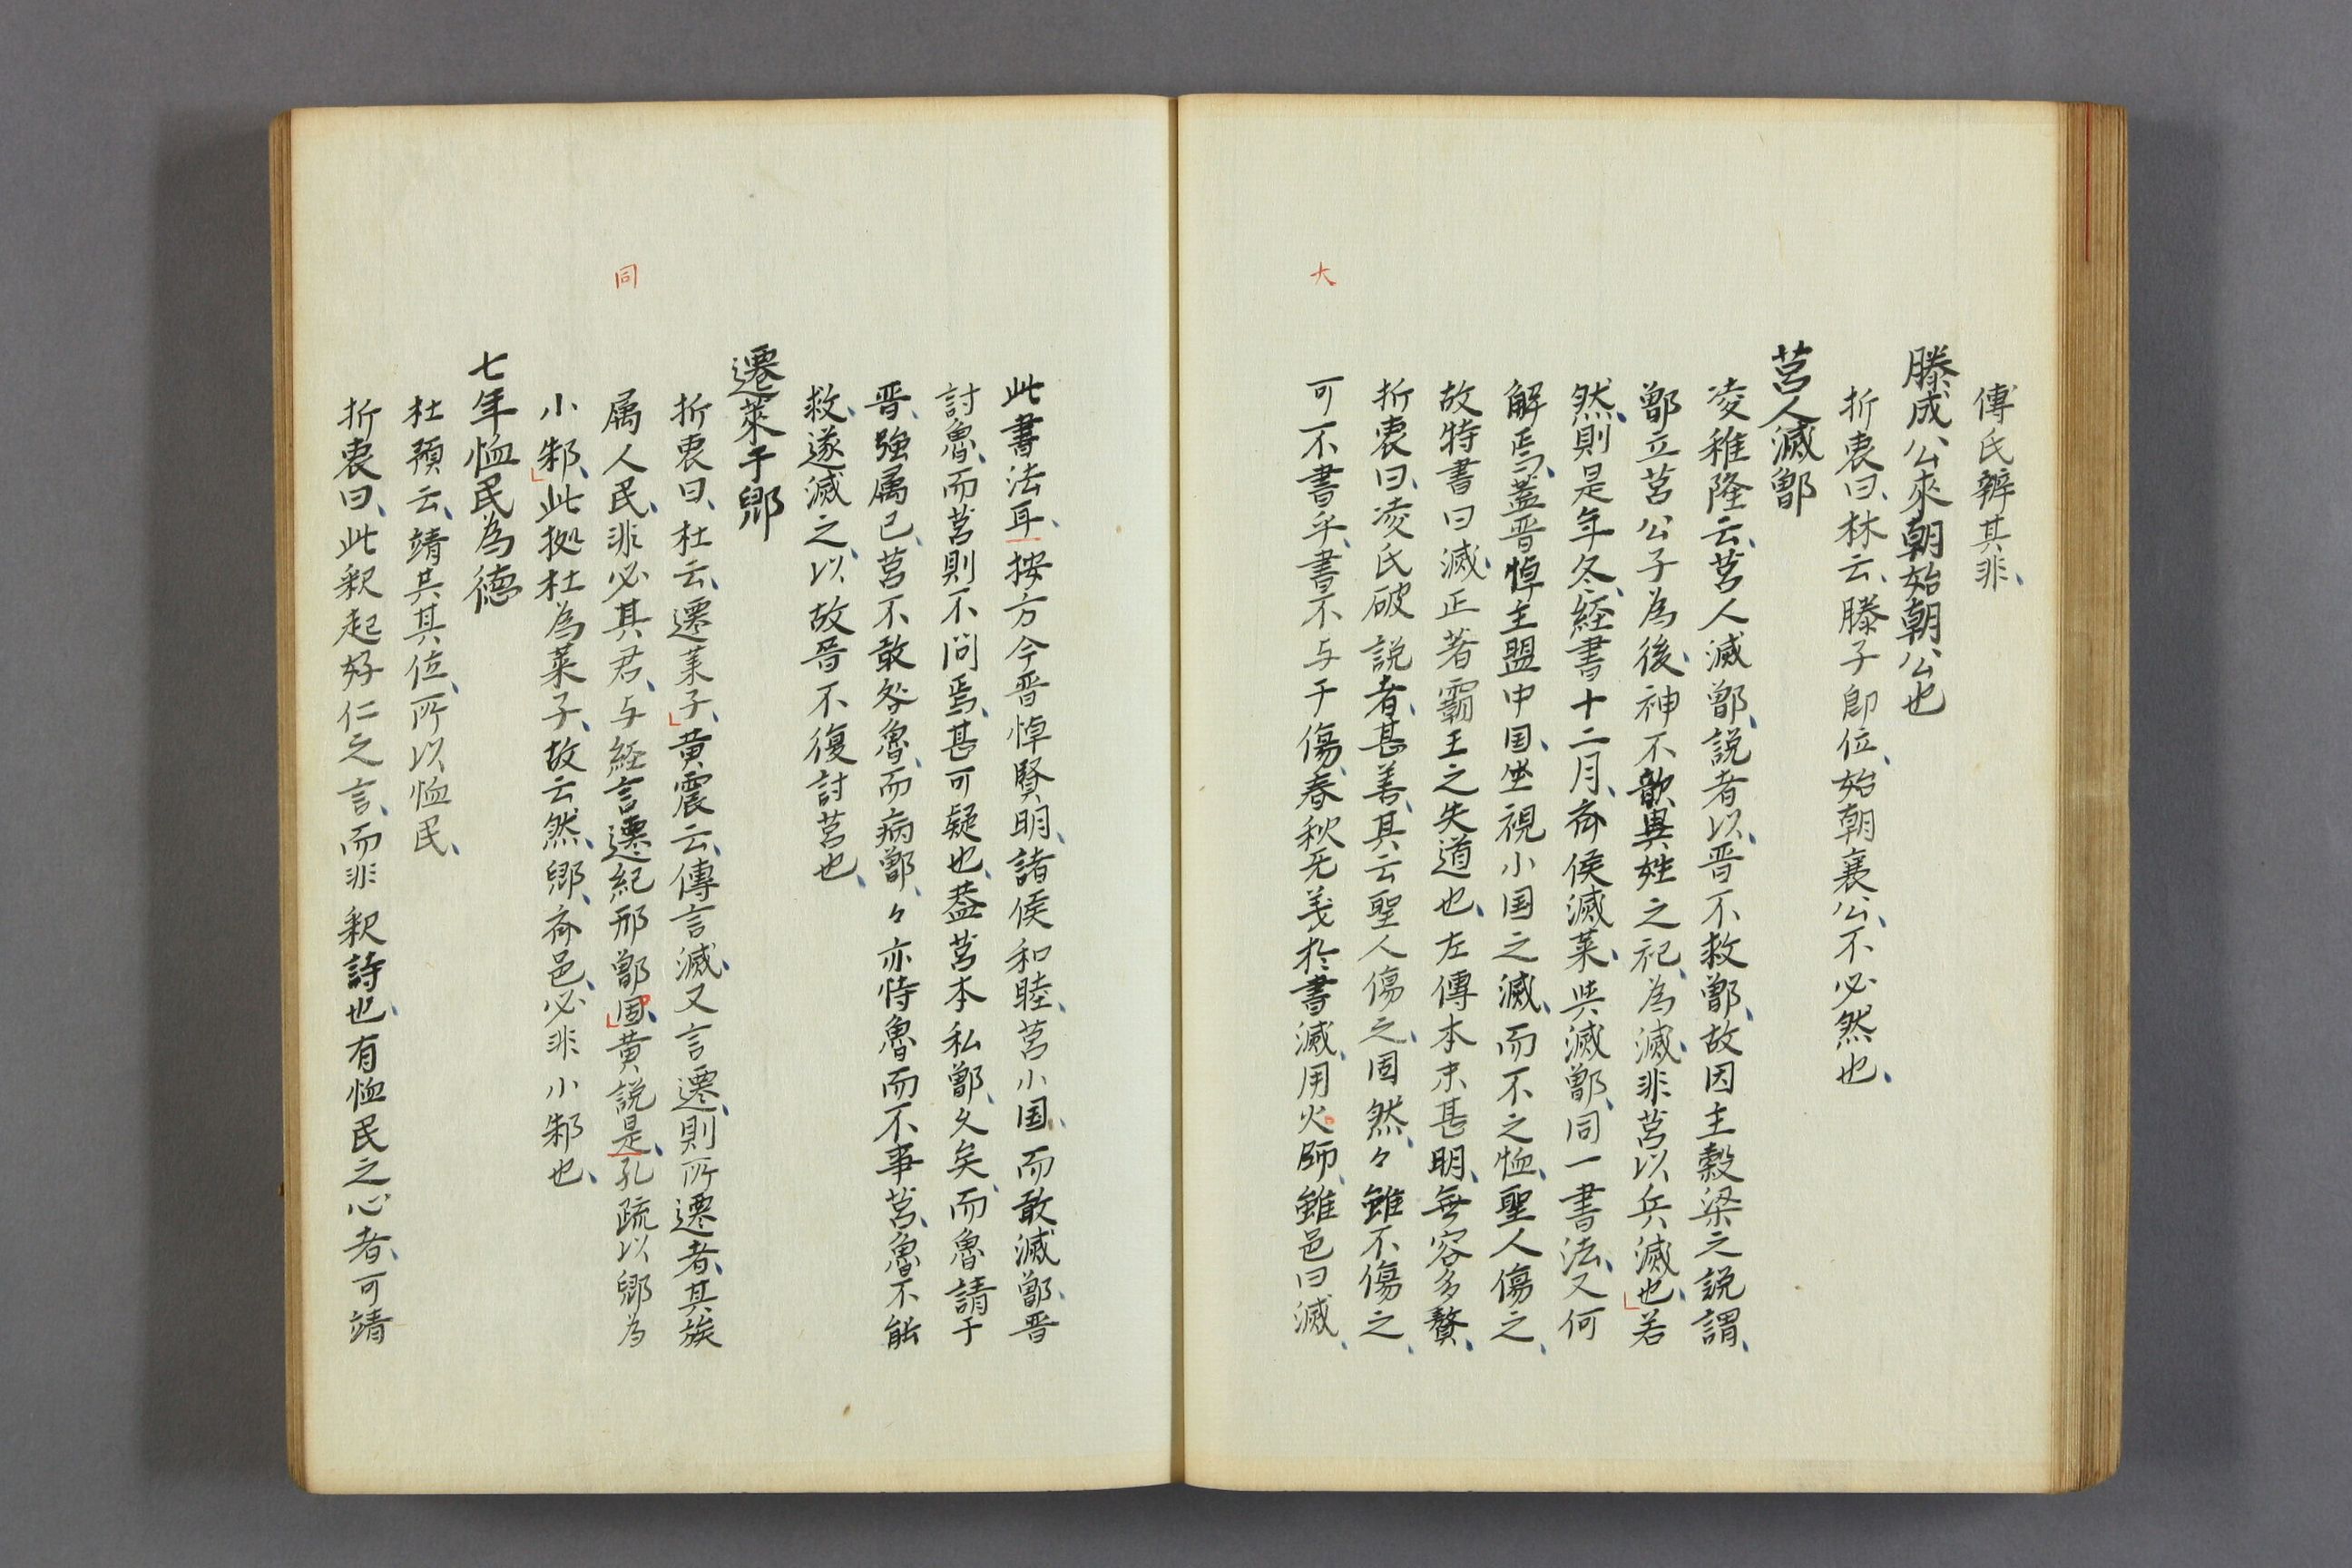 傳氏辨其非、
滕成公來朝始朝公也
折衷曰、林云、滕子即位、始朝襄公、不必然也、
莒人滅鄫
凌稚隆云、莒人滅鄫、説者以晋不救鄫、故因主穀梁之説謂、
鄫立莒公子為後、神不歆異姓之祀、為滅、非莒以兵滅也、」若
然、則是年冬、経書十二月、斉侯滅萊、与滅鄫、同一書法、又何
解焉、蓋晋悼主盟中国、坐視小国之滅、而不之恤、聖人傷之、
故特書曰滅、正著霸王之失道也、左傳本末甚明、無容多贅、
折衷曰、凌氏破説者、甚善、其云聖人傷之、固然、々雖不傷之、
可不書乎、書不与于傷、春秋无義於書滅、用火師、雖邑曰滅、
大
此書法耳、按方今晋悼賢明、諸侯和睦、莒小国、而敢滅鄫、晋
討魯、而莒則不问焉、甚可疑也、蓋莒本私鄫、久矣、而魯請于
晋、強属己、莒不敢咎魯、而病鄫、々亦恃魯而不事莒、魯不能
救、遂滅之、以故晉不復討莒也、
遷萊于郳
折衷曰、杜云、遷萊子、」黄震云、傳言滅、又言遷、則所遷者、其族
属人民、非必其君、与経言遷紀邢鄫国、」黄説是、孔疏以郳為
同
小邾、」此拠杜為萊子、故云然、郳、斉邑、必非小邾也、
七年恤民為德
杜預云、靖共其位、所以恤民、
折衷曰、此釈起好仁之言、而非釈詩也、有恤民之心者、可靖